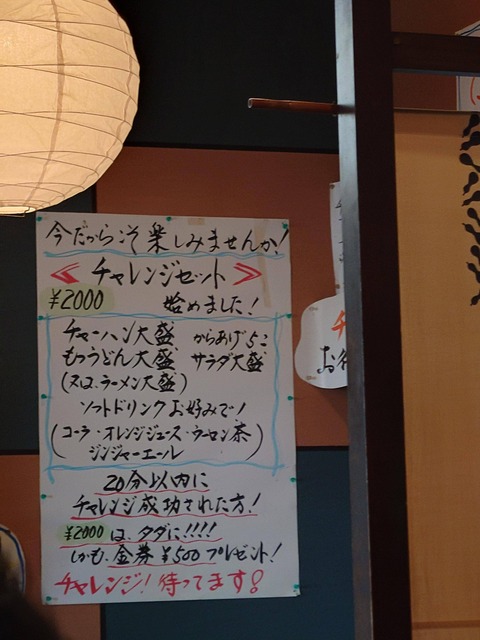 今だからこそ楽しみませんか!
≪ チャレンジセット ≫
¥2000 始めました!
チャーハン大盛 からあげ5コ
もつうどん大盛 サラダ大盛
(又は、ラーメン大盛)
ソフトドリンクお好みで!
(コーラ・オレンジジュース・ウーロン茶
ジンジャーエール)
20分以内に
チャレンジ成功された方!
¥2000は、タダに!!!!
しかも、金券¥500プレゼント!
チャレンジ!待ってます!